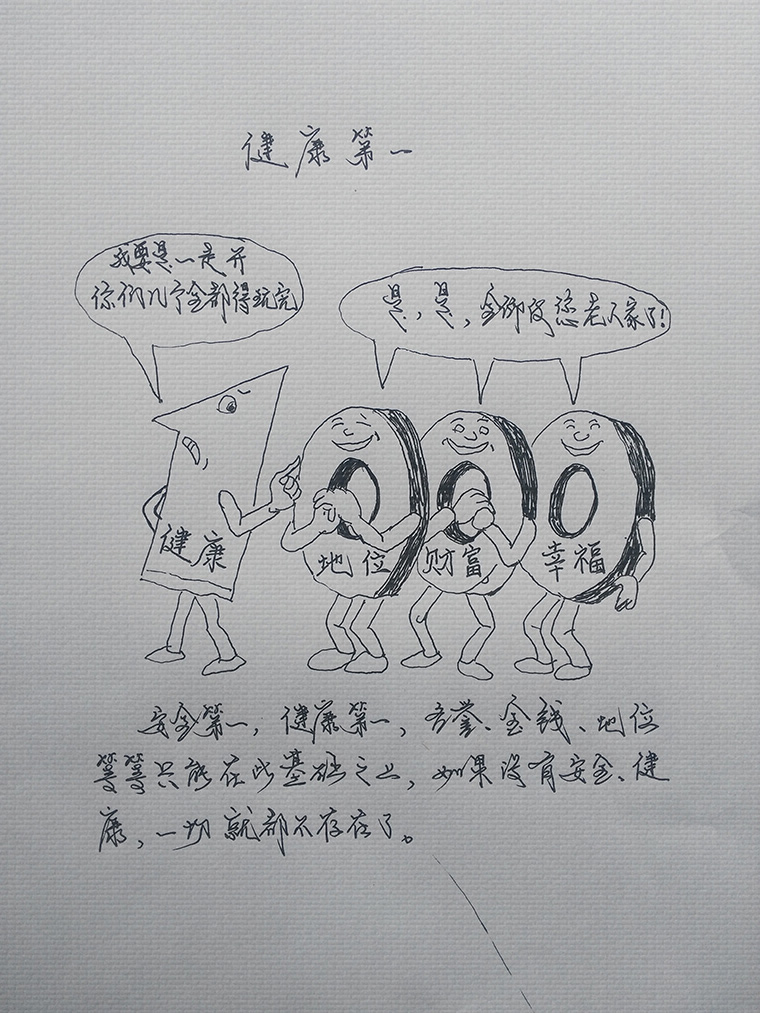 健康第一
我要是一走开
你们几个全都得玩完
是，是，全仰仗您老人家了！
健康
地位
财富
幸福
安全第一，健康第一，名誉、金钱、地位
等等只能在此基础之上，如果没有安全、健
康，一切就都不存在了。